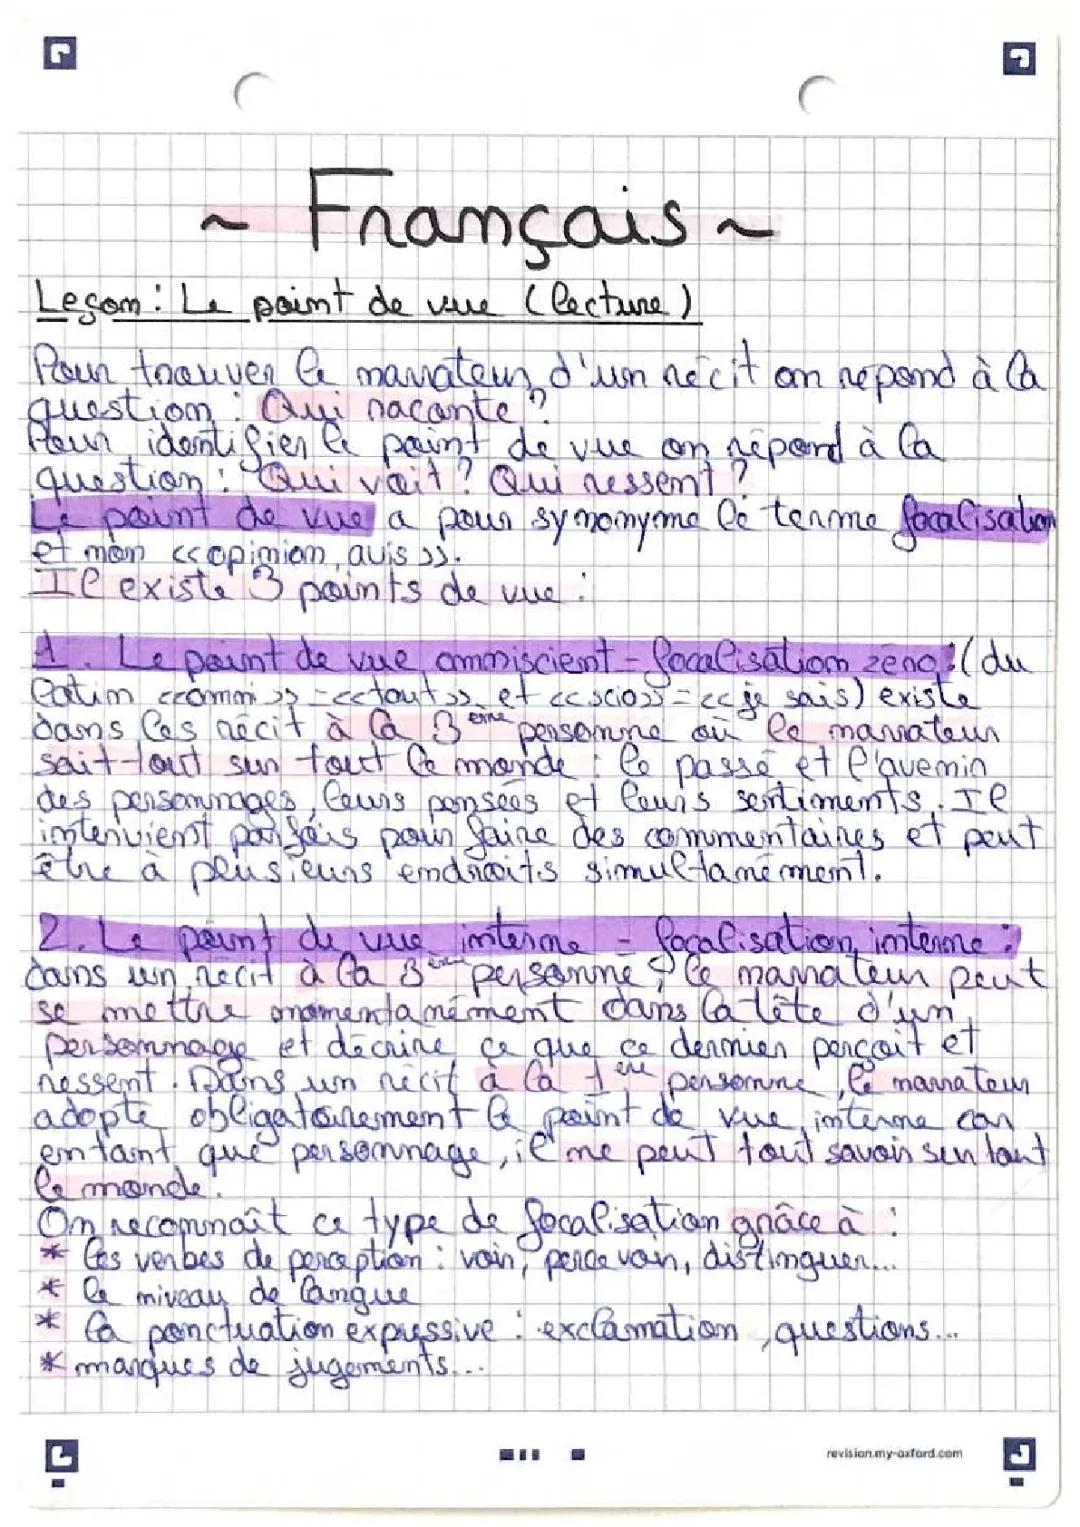 ~ Français ~
Leçon : Le point de vue (lecture)
Pour trouver le narrateur d'un récit on répond à la
question : Qui raconte ?
Pour identifier le point de vue on répond à la
question : Qui voit ? Qui ressent ?
Le point de vue a pour synonyme le terme focalisation
et non << opinion, avis >>.
Il existe 3 points de vue :
1. Le point de vue omniscient - focalisation zéro : (du
latin << omni >> = << tout >> et << scio >> = << je sais) existe
dans les récit à la 3ème personne où le narrateur
sait tout sur tout le monde : le passé et l'avenir
des personnages, leurs pensées et leurs sentiments. Il
intervient parfois pour faire des commentaires et peut
être à plusieurs endroits simultanément.
2. Le point de vue interne - focalisation interne :
dans un récit à la 3ème personne, le narrateur peut
se mettre momentanément dans la tête d'un
personnage et décrire ce que ce dernier perçoit et
ressent. Dans un récit à la 1ère personne, le narrateur
adopte obligatoirement le point de vue interne car
entant que personnage, il ne peut tout savoir sur tout
le monde.
On reconnaît ce type de focalisation grâce à :
* les verbes de perception : voir, percevoir, distinguer...
* le niveau de langue
* la ponctuation expressive : exclamation, questions...
* marques de jugements...
revision.my-oxford.com